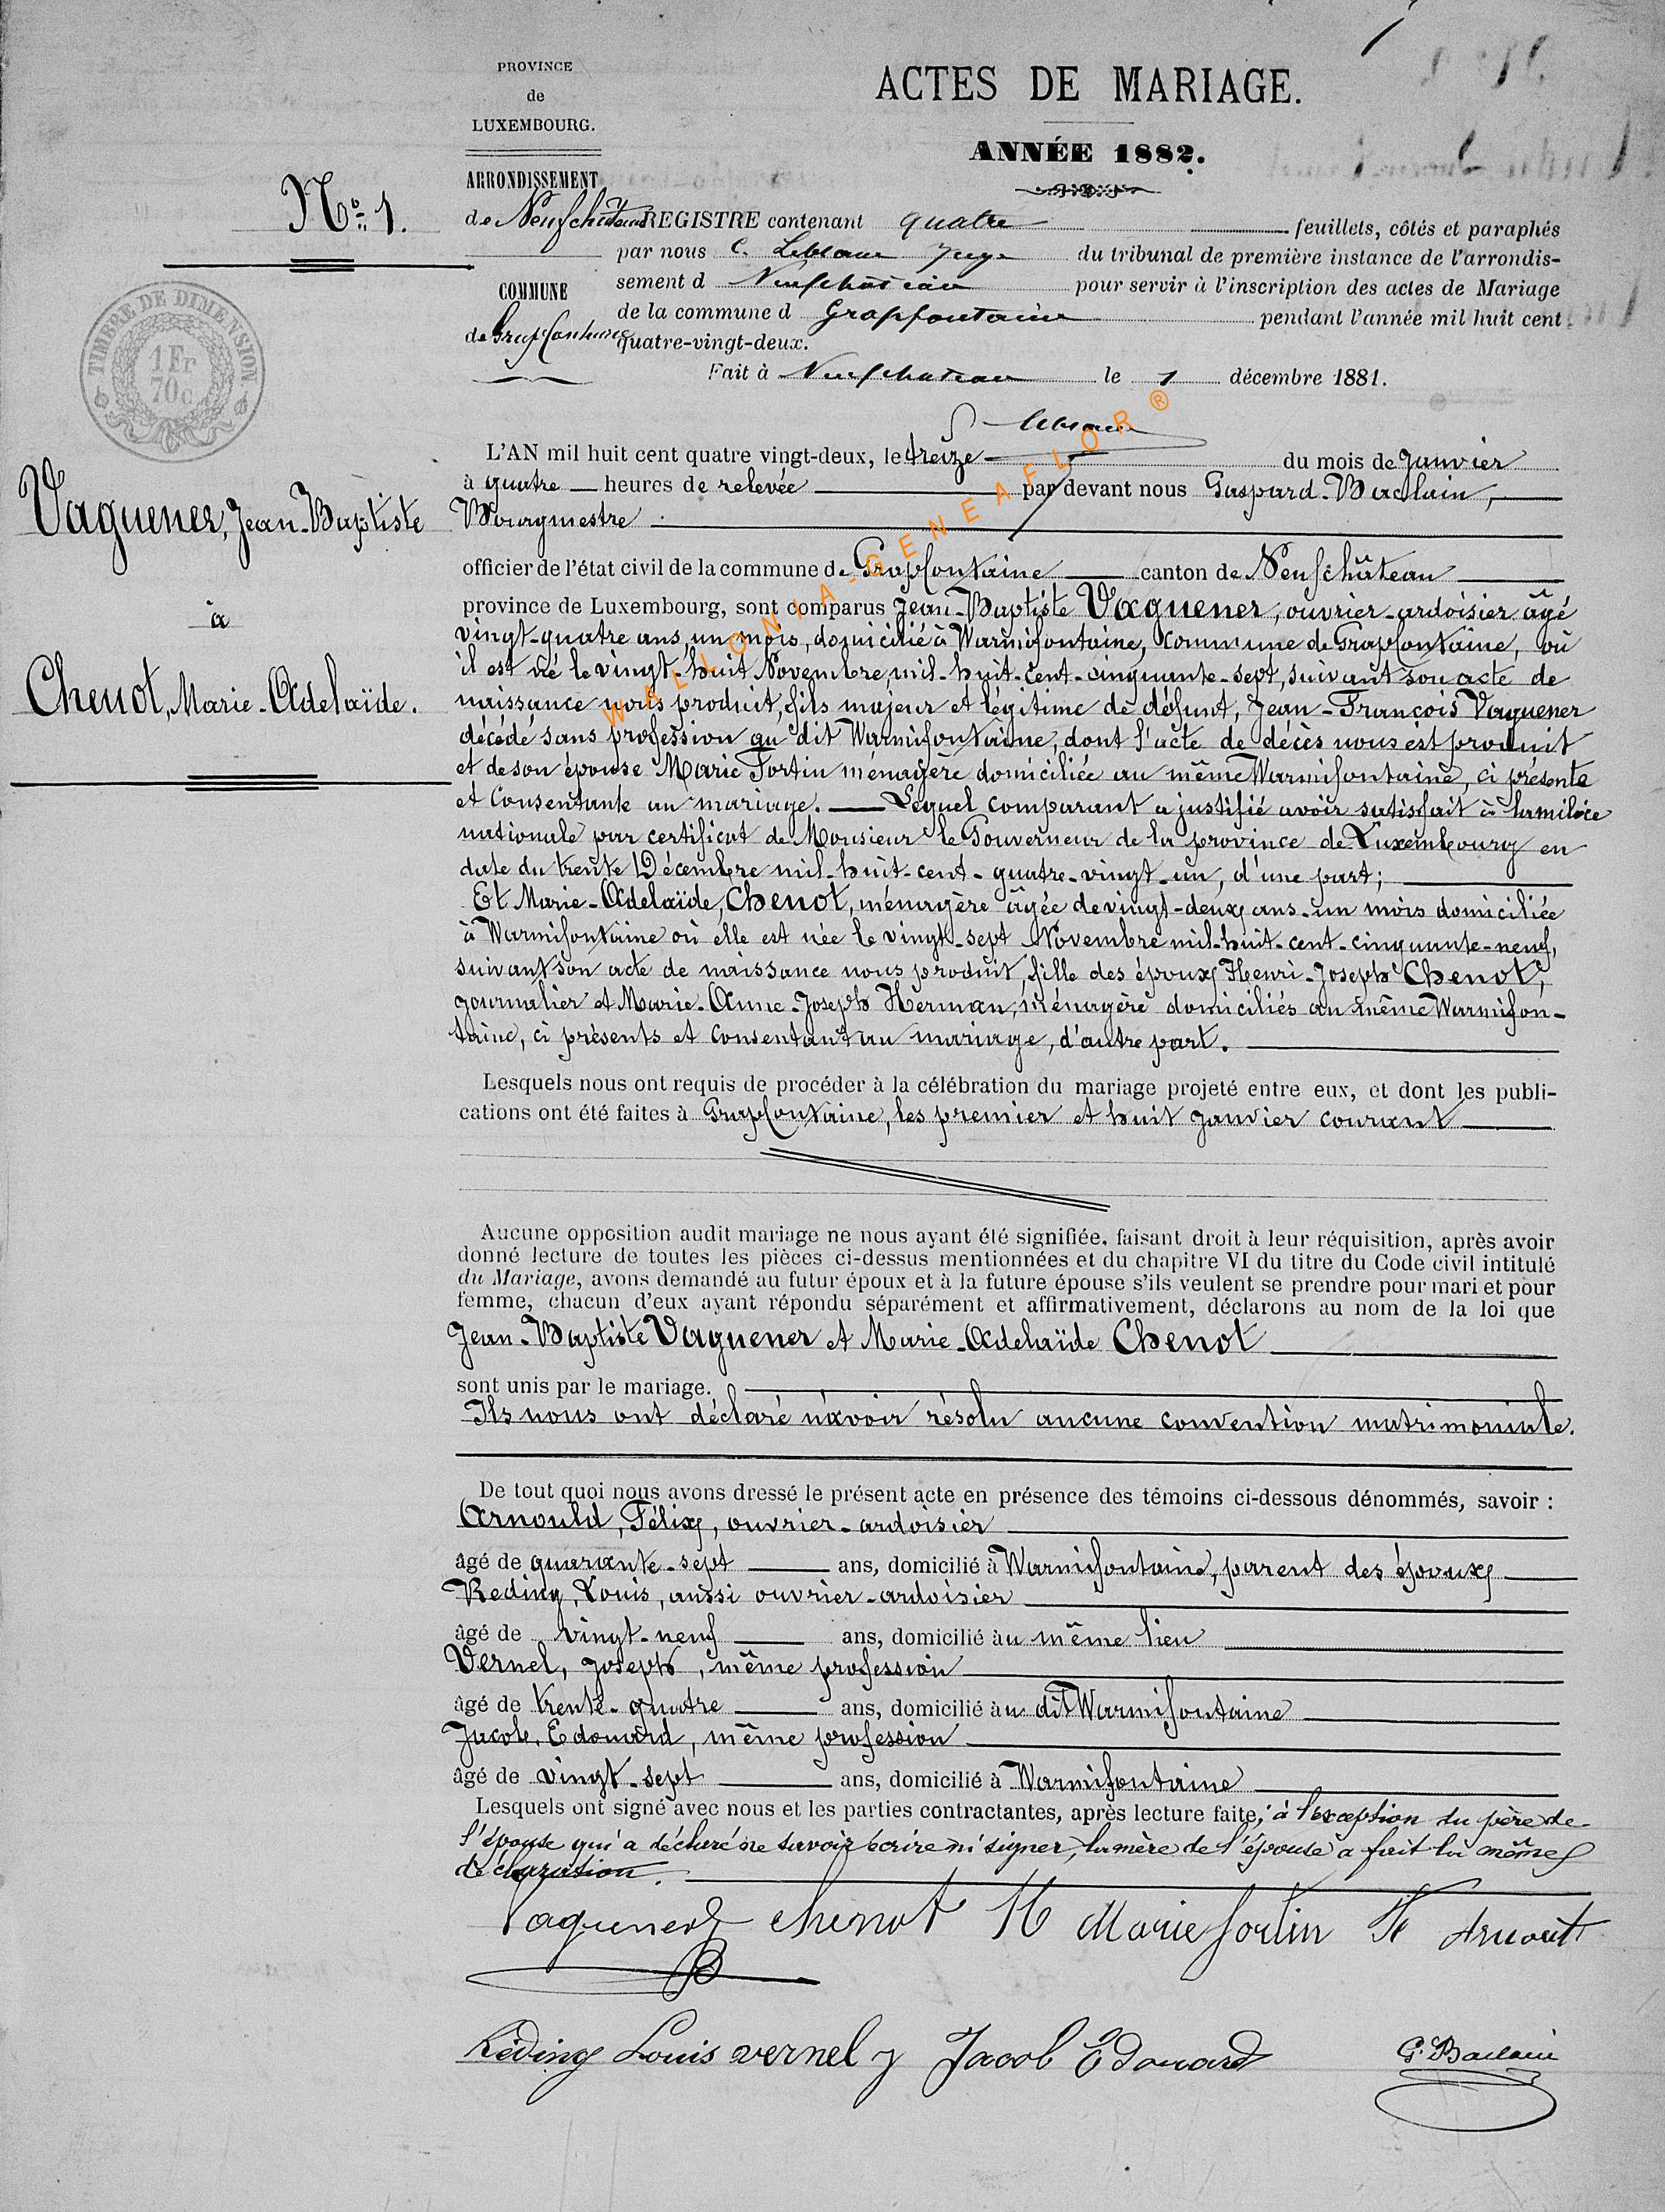 PROVINCE
de
LUXEMBOURG.
ARRONDISSEMENT
de Neufchâteau
COMMUNE
de Grapfontaine
ACTES DE MARIAGE.
ANNÉE 1882.
REGISTRE contenant quatre feuillets, côtés et paraphés
par nous C. Leblanc Juge du tribunal de première instance de l'arrondis-
sement d Neufchâteau pour servir à l'inscription des actes de Mariage
de la commune d Grapfontaine pendant l'année mil huit cent
quatre-vingt-deux.
Fait à Neufchateau le 1 décembre 1881.
Leblanc
No. 1.
TIMBRE DE DIMENSION
1 Fr
70 c
Vaguener, Jean-Baptiste
à
Chenot, Marie-Adelaïde.
L'AN mil huit cent quatre vingt-deux, le treize du mois de Janvier
à quatre heures de relevée par devant nous Gaspard Baclain,
Bourgmestre
officier de l'état civil de la commune de Grapfontaine canton de Neufchâteau
province de Luxembourg, sont comparus Jean-Baptiste Vaguener, ouvrier-ardoisier âgé
vingt-quatre ans, un mois, domicilié à Warmifontaine, commune de Grapfontaine, où
il est né le vingt-huit Novembre, mil-huit-cent-cinquante-sept, suivant son acte de
naissance nous produit, fils majeur et légitime de défunt, Jean-François Vaguener
décédé sans profession au dit Warmifontaine, dont l'acte de décès nous est produit
et de son épouse Marie Fortin ménagère domiciliée au même Warmifontaine, ci présente
et Consentante au mariage. Lequel comparant a justifié avoir satisfait à la milice
nationale par certificat de Monsieur le Gouverneur de la province de Luxembourg en
date du trente Décembre mil-huit-cent-quatre-vingt-un, d'une part;
Et Marie-Adelaïde, Chenot, ménagère âgée de vingt-deux ans-un mois domiciliée
à Warmifontaine où elle est née le vingt-sept Novembre mil-huit-cent-cinquante-neuf,
suivant son acte de naissance nous produit, fille des époux Henri-Joseph Chenot,
journalier et Marie-Anne-Joseph Herman, ménagère domiciliés au même Warmifon-
taine, ci présents et Consentant au mariage, d'autre part.
Lesquels nous ont requis de procéder à la célébration du mariage projeté entre eux, et dont les publi-
cations ont été faites à Grapfontaine, les premier et huit janvier courant
Aucune opposition audit mariage ne nous ayant été signifiée, faisant droit à leur réquisition, après avoir
donné lecture de toutes les pièces ci-dessus mentionnées et du chapitre VI du titre du Code civil intitulé
du Mariage, avons demandé au futur époux et à la future épouse s'ils veulent se prendre pour mari et pour
femme, chacun d'eux ayant répondu séparément et affirmativement, déclarons au nom de la loi que
Jean-Baptiste Vaguener et Marie-Adelaïde Chenot
sont unis par le mariage.
Ils nous ont déclaré n'avoir résolu aucune convention matrimoniale.
De tout quoi nous avons dressé le présent acte en présence des témoins ci-dessous dénommés, savoir :
Arnould, Félix, ouvrier-ardoisier
âgé de quarante-sept ans, domicilié à Warmifontaine, parent des époux
Reding, Louis, aussi ouvrier-ardoisier
âgé de vingt-neuf ans, domicilié au même lieu
Vernel, Joseph, même profession
âgé de trente-quatre ans, domicilié au dit Warmifontaine
Jacob, Edouard, même profession
âgé de vingt-sept ans, domicilié à Warmifontaine
Lesquels ont signé avec nous et les parties contractantes, après lecture faite, à l'exception du père de
l'épouse qui a déclaré ne savoir écrire ni signer, la mère de l'épouse a fait la même
déclaration.
Vaguener JB chenot M Marie fortin F Arnoult
Reding Louis vernel J Jacob Edouard G. Baclain
WALLONIA-GENEAFLOR®